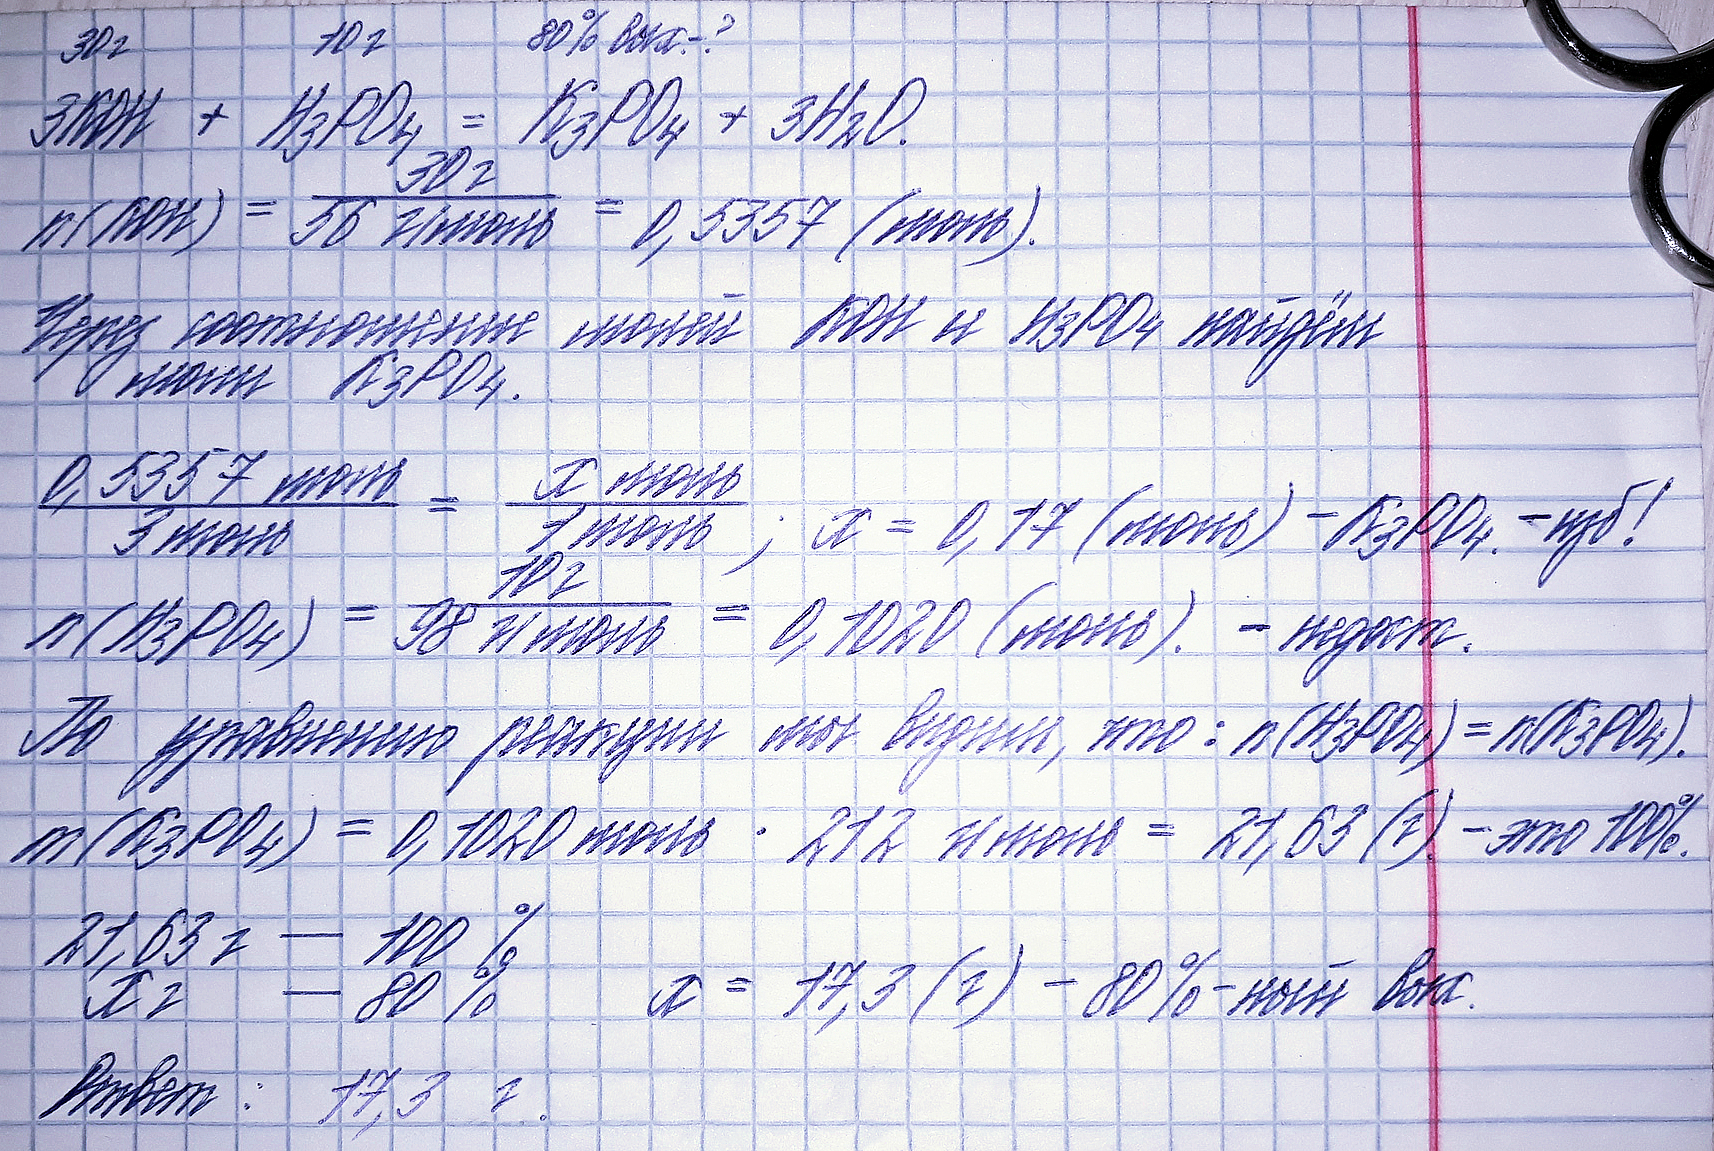 30г 10г 80% вых.-?
3KOH + H₃PO₄ = K₃PO₄ + 3H₂O.
n(KOH) = 30г / 56 г/моль = 0,5357 (моль).
Через соотношение молей KOH и H₃PO₄ найдём
моли K₃PO₄.
0,5357 моль / 3 моль = x моль / 1 моль ; x = 0,17 (моль) - K₃PO₄. - изб!
n(H₃PO₄) = 10г / 98 г/моль = 0,1020 (моль). - недост.
По уравнению реакции мы видим, что: n(H₃PO₄) = n(K₃PO₄).
m(K₃PO₄) = 0,1020 моль · 212 г/моль = 21,63 (г). - это 100%.
21,63 г — 100 %
x г — 80 % x = 17,3 (г) - 80%-ный вых.
Ответ: 17,3 г.